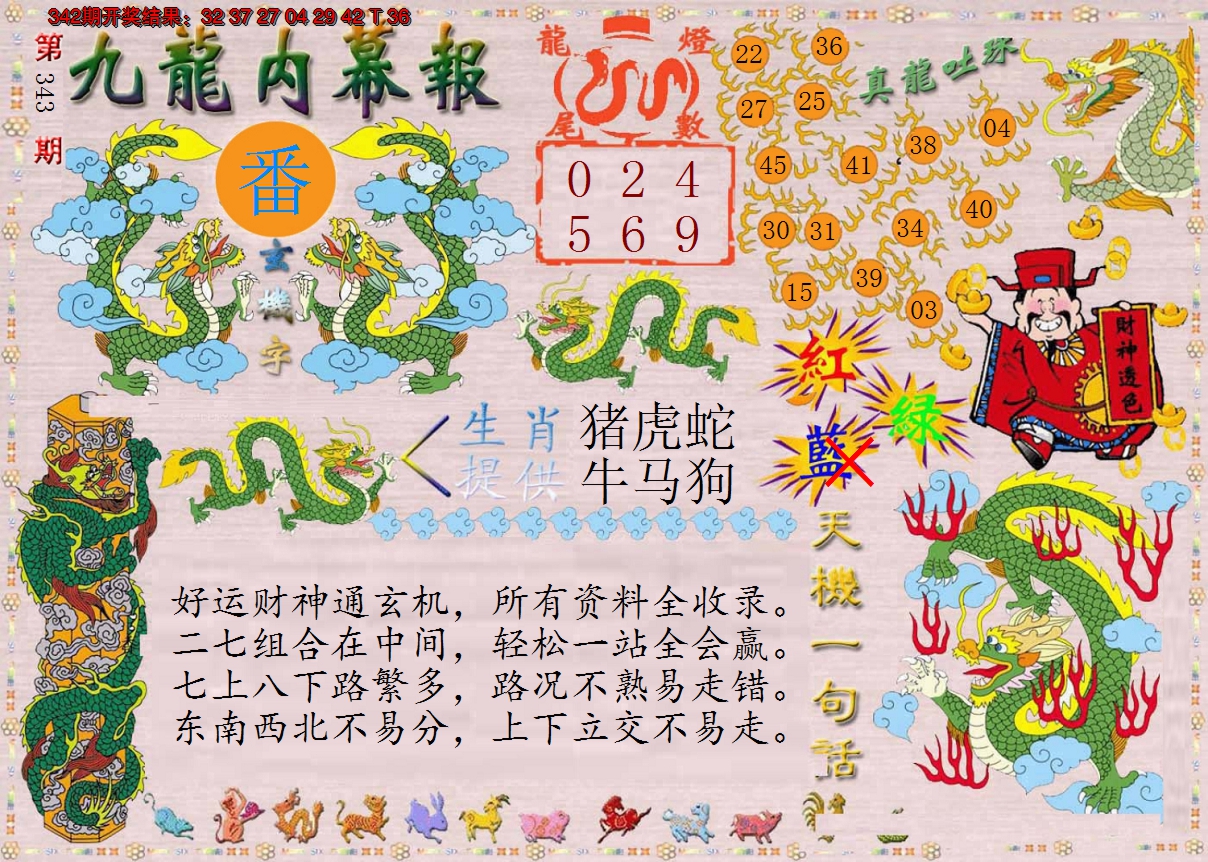 342期开奖结果：32 37 27 04 29 42 T 36
第343期
九龍内幕報
番
玄機字
龍燈
尾數
0 2 4
5 6 9
真龍吐珠
22 36
27 25
38 04
45 41
40
30 31 34
39
15
03
財神透色
紅
綠
藍
生肖
提供
猪虎蛇
牛马狗
天機一句話
好运财神通玄机，所有资料全收录。
二七组合在中间，轻松一站全会赢。
七上八下路繁多，路况不熟易走错。
东南西北不易分，上下立交不易走。